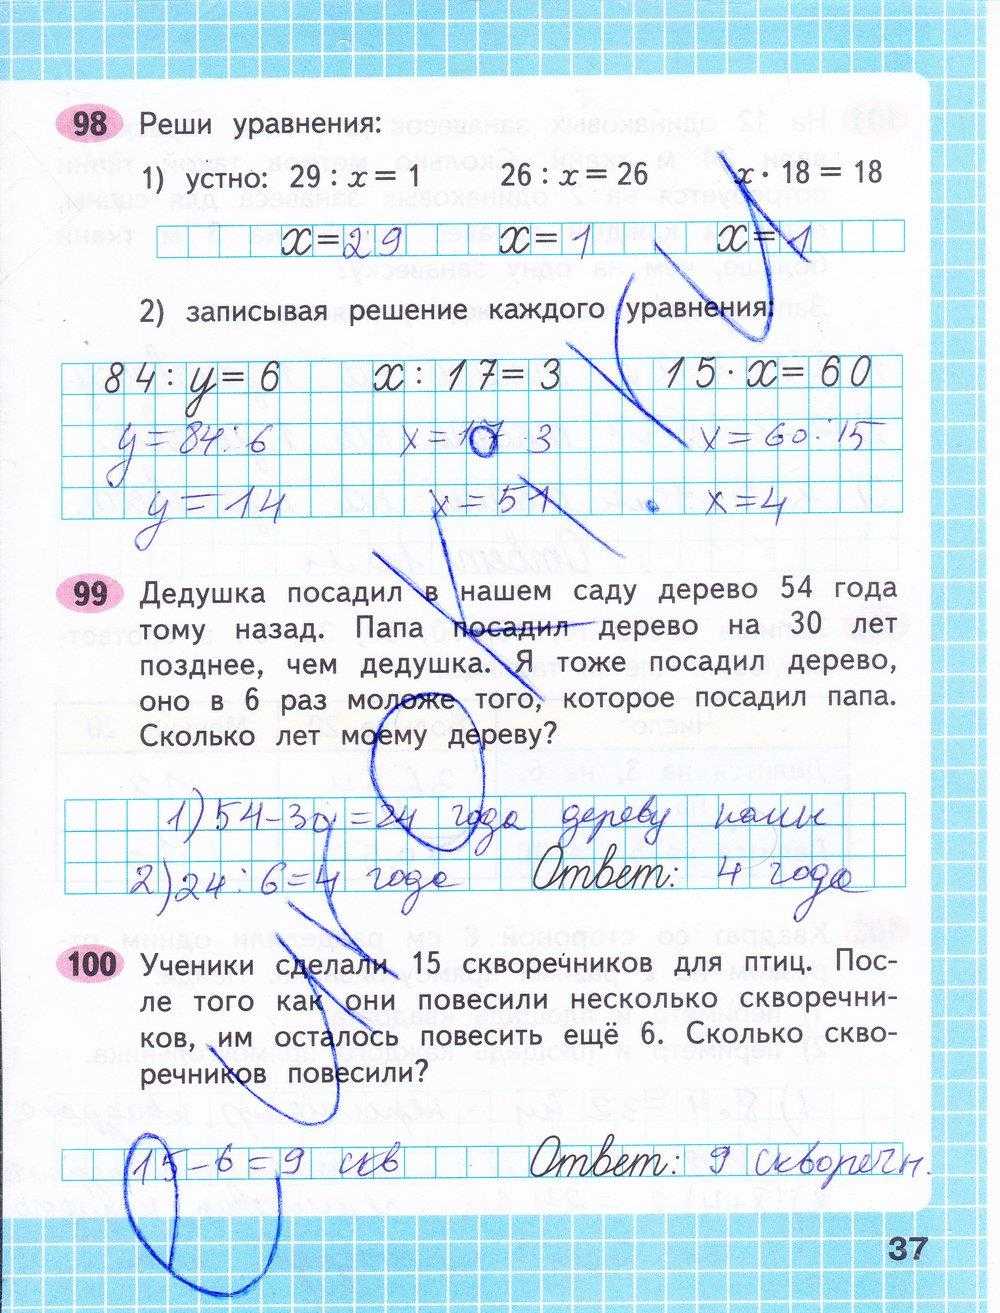 98 Реши уравнения:
1) устно: 29 : x = 1 26 : x = 26 x · 18 = 18
x = 29 x = 1 x = 1
2) записывая решение каждого уравнения:
84 : y = 6 x : 17 = 3 15 · x = 60
y = 84 : 6 x = 17 · 3 x = 60 : 15
y = 14 x = 51 x = 4
99 Дедушка посадил в нашем саду дерево 54 года
тому назад. Папа посадил дерево на 30 лет
позднее, чем дедушка. Я тоже посадил дерево,
оно в 6 раз моложе того, которое посадил папа.
Сколько лет моему дереву?
1) 54 - 30 = 24 года дереву папы
2) 24 : 6 = 4 года Ответ: 4 года
100 Ученики сделали 15 скворечников для птиц. Пос-
ле того как они повесили несколько скворечни-
ков, им осталось повесить ещё 6. Сколько скво-
речников повесили?
15 - 6 = 9 скв Ответ: 9 скворечн.
37